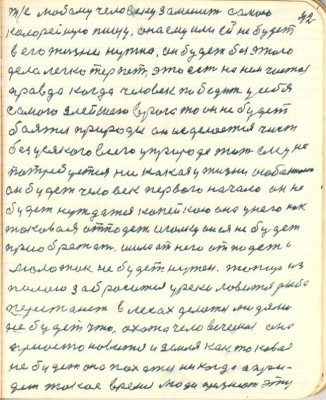 42
т/е любому человеку заменит самою
калорейную пищу, она ему или ей не будет
в его жизни нужна, он будет без этого
дела легко терпет, это ест на нем чистая
правда когда человек победит у себя
самого злейшего врога то он не будет
боятся природы он сделается чист
без усякого всего у природе тот ему не
потребуется ни какая у жизни особен
он будет человек первого начало он не
будет нуждатся копейкою она у него как
таковая отпадет и он ею не будет
приобретат. от него отпадет
молоток не будет нужен. топор из
забросится у реки ловится рыба
перестанет в лесах делат людям
не будет что, охота человеческая она
приостоновится и земля как токовая
не будет она похожи никогда а прий-
дет такое время люди признают эту